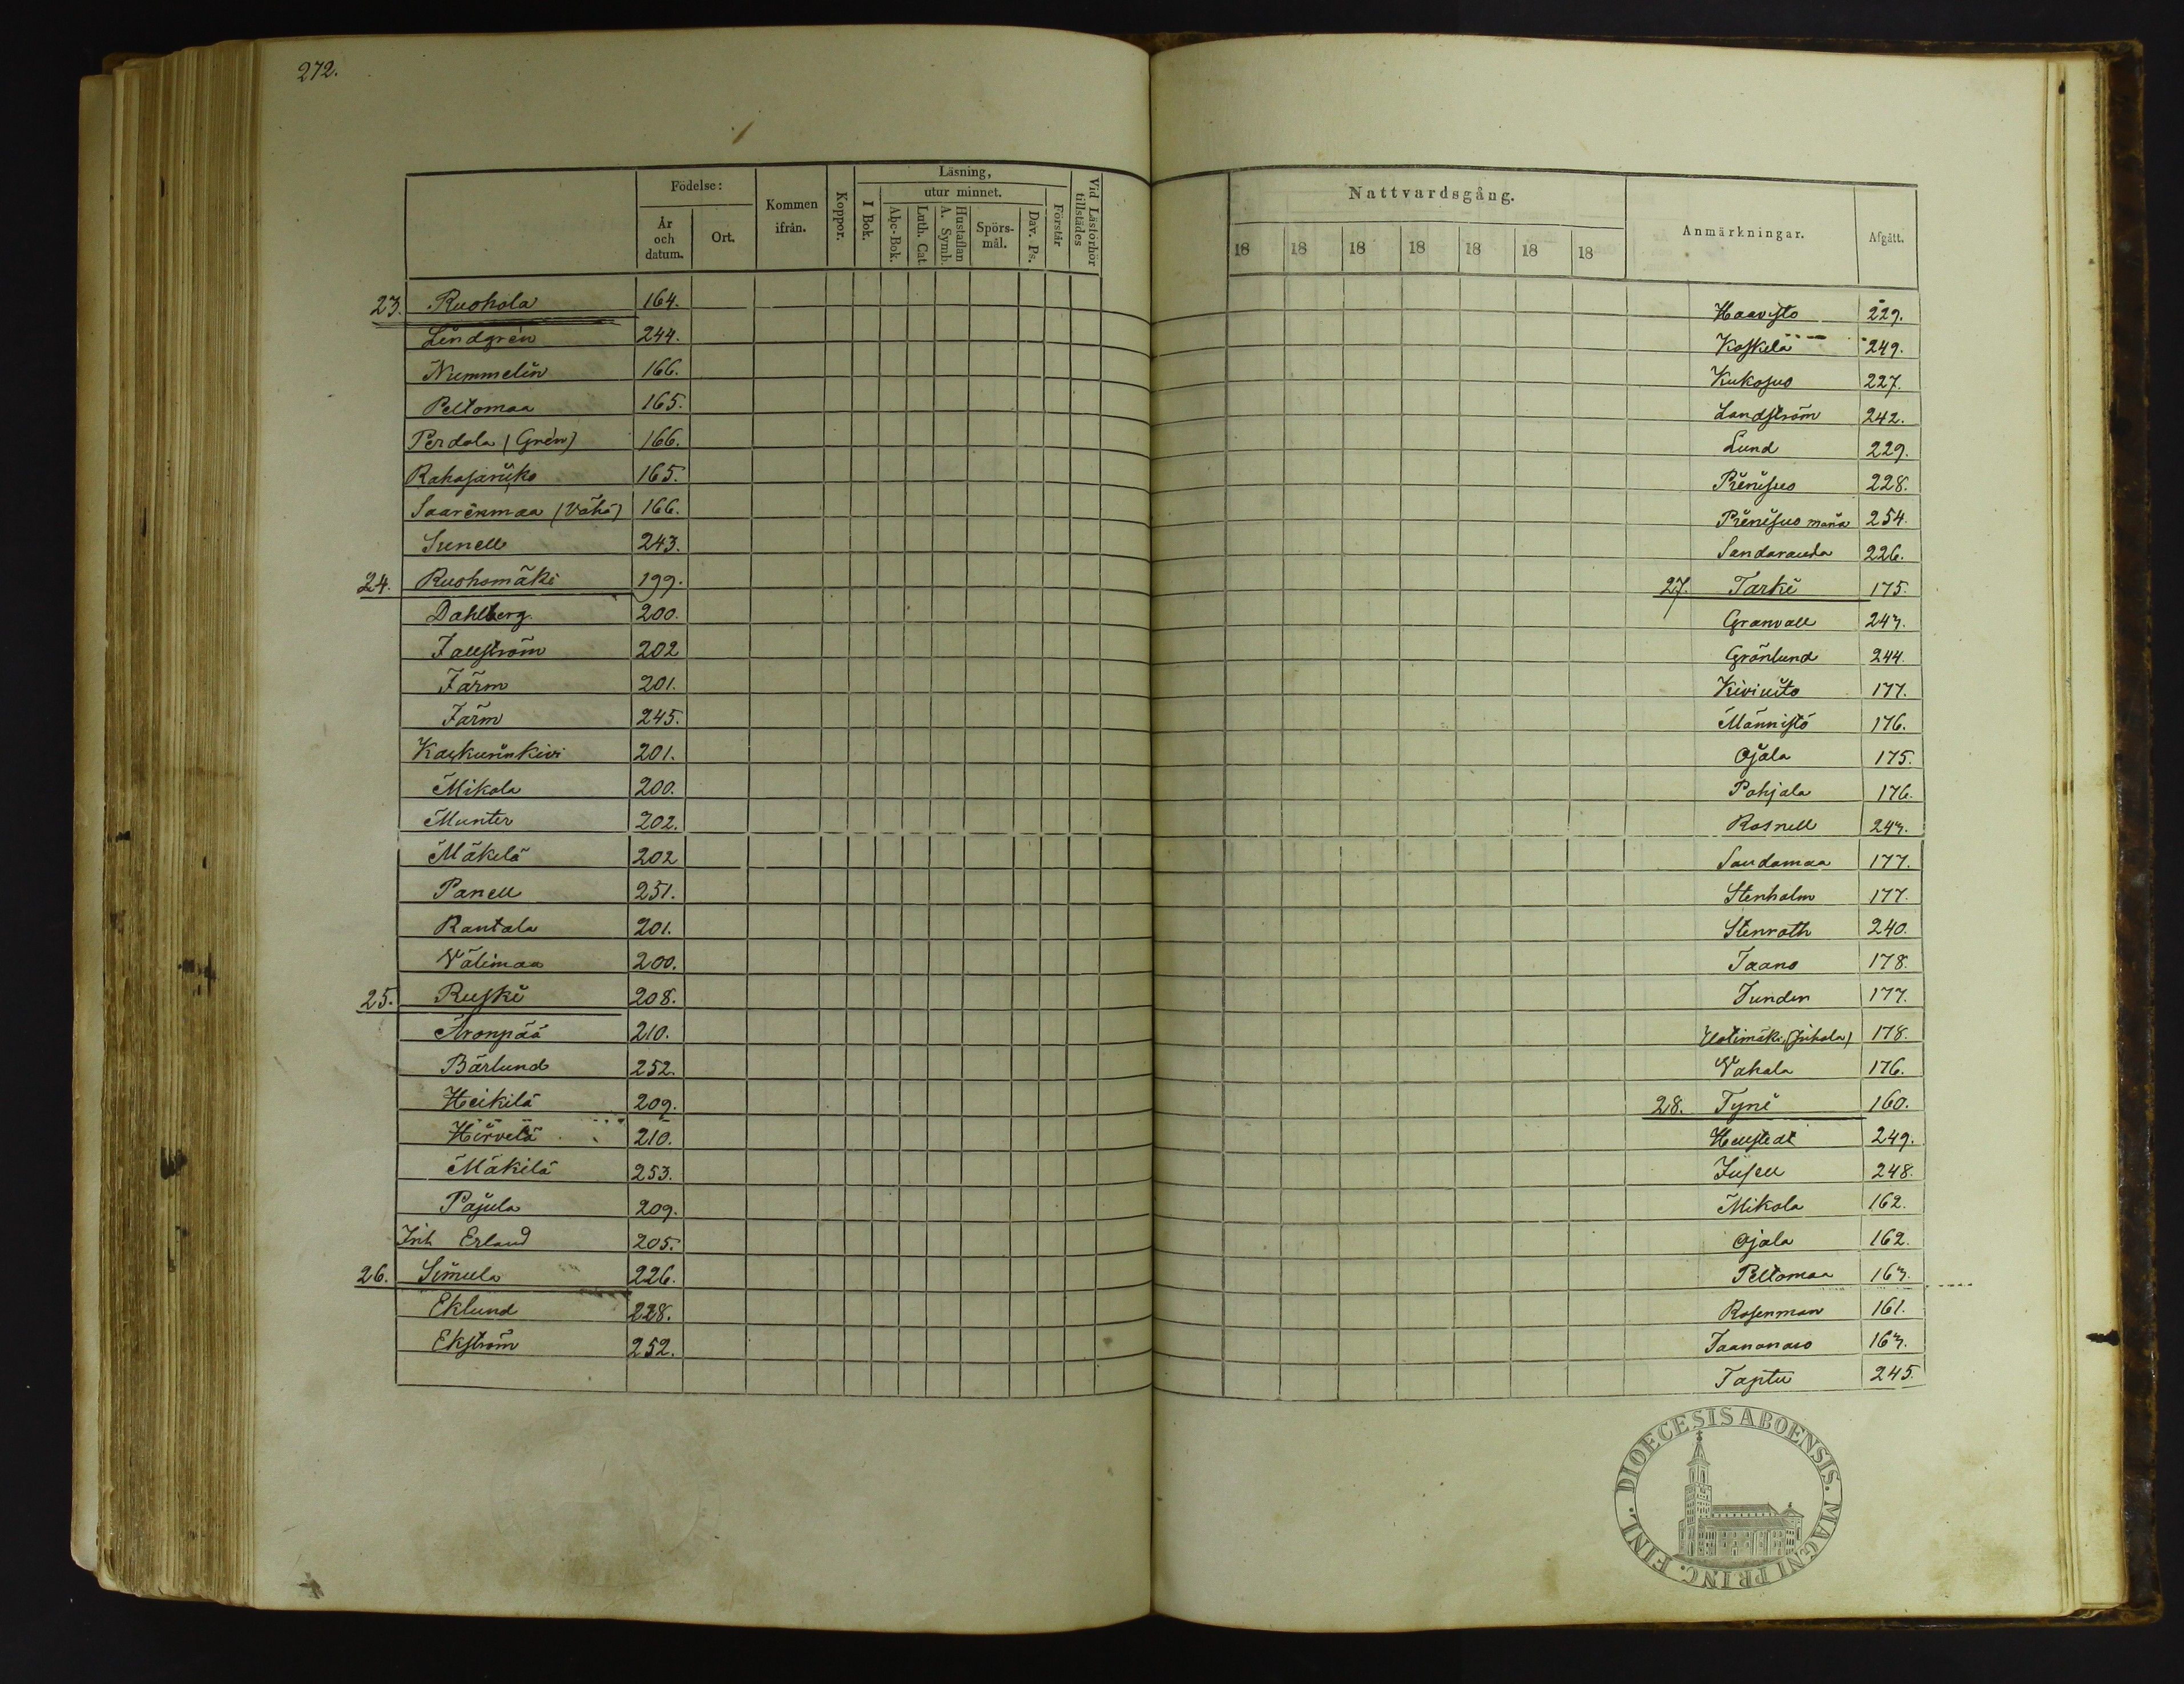 272.
Födelse:
År och datum.
Ort.
Kommen ifrån.
Koppor.
Läsning,
I Bok.
utur minnet.
Abc-Bok.
Luth. Cat.
Hustaflan A. Symb.
Spörs-mål.
Dav. Ps.
Förstår
Vid Läsförhör tillstädes
23. Ruohola 164.
Lindgrén 244.
Nummelin 166.
Peltomaa 165.
Perdola (Grén) 166.
Rahajärüko 165.
Saarenmaa (Vähä) 166.
Sunell 243.
24. Ruohomäki 199.
Dahlberg 200.
Jallström 202
Järm 201.
Järm 245.
Kaskuinkivi 201.
Mikola 200.
Munter 202.
Mäkelä 202
Panell 251.
Rantala 201.
Välimaa 200.
25. Ruski 208.
Aronpää 210.
Bärlund 252.
Heikilä 209.
Hirvelä 210.
Mäkilä 253.
Pajula 209.
Inh Erland 205.
26. Simula 226.
Eklund 228.
Ekström 252.
Nattvardsgång.
18 18 18 18 18 18 18
Anmärkningar.
Afgått.
Haavisto 229.
Koskela 249.
Kukosuo 227.
Landström 242.
Lund 229.
Piénisuo 228.
Piénisuo 254.
Sandarauda 226.
27. Tarki 175.
Granvall 243.
Grönlund 244.
Kiviisto 177.
Männistö 176.
Ojala 175.
Pohjala 176.
Rosnell 243.
Saudamaa 177.
Stenholm 177.
Stenroth 240.
Taano 178.
Tunden 177.
Uotimäki (Juhola) 178.
Vahala 176.
28. Tyni 160.
Hellstedt 249.
Jusell 248.
Mikola 162.
Ojala 162.
Peltomaa 163.
Rosenman 161.
Taananaro 163.
Taptu 245.
DIOECESIS ABOENSIS. MAGNI PRINC. FINL.